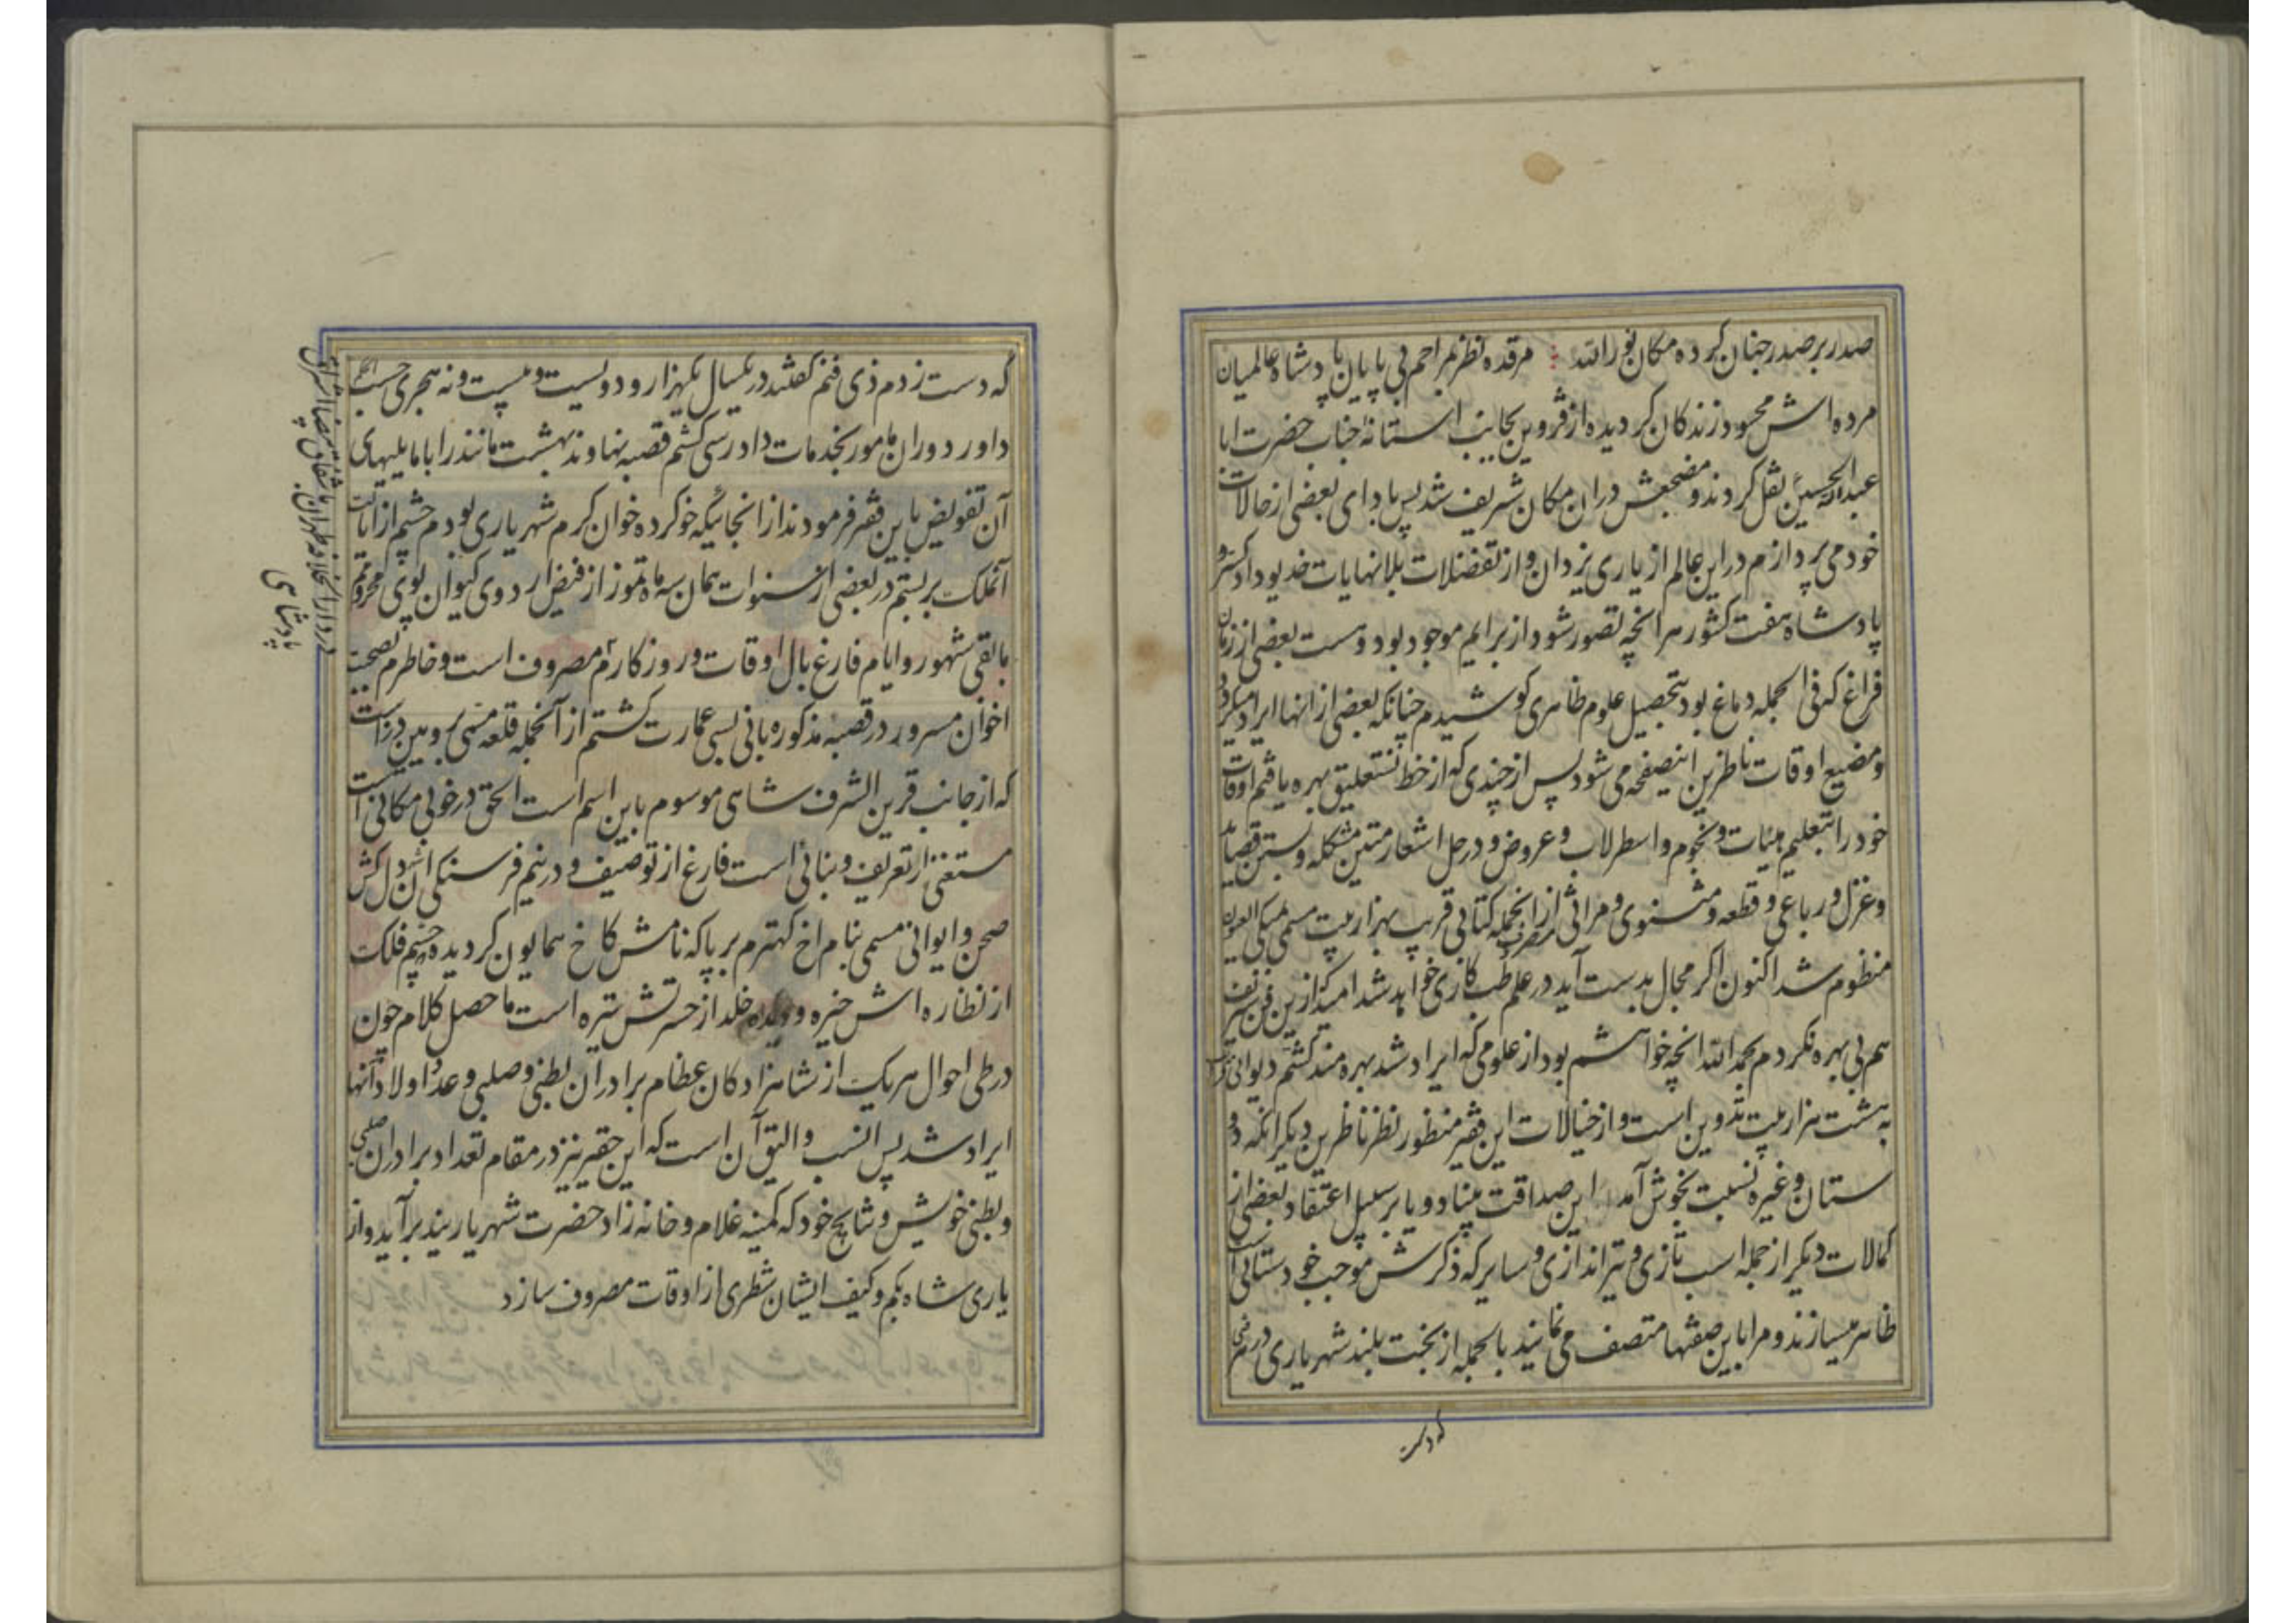 صدر بر صدر جنان کرده مکان نور الله مرقده نظر بمراحم بی پایان پادشاه عالمیان
مرده اش محسود زندکان کردیده از قزوین بجانب استانه جناب حضرت ابا
عبدالله الحسین نقل کردند و مضجعش دران مکان شریف شد پس بادای بعضی از حالات
خود می پردازم در این عالم از یاری یزدان و از تفضلات بلانهایات خدیو دادکستر و
پادشاه هفت کشور هر انچه تصور شود از برایم موجود بود و هست بعضی از زمان
فراغ که فی الجمله دماغ بود بتحصیل علوم ظاهری کوشیدم چنانکه بعضی از انها ایراد میکردد
و مضیع اوقات ناظرین اینصفحه می شود پس از چندی که از خط نستعلیق بهره یافتم اوقات
خود را بتعلیم هیئات و نجوم و اسطرلاب و عروض و در حل اشعار متین مشکله و بستن قصاید
و غزل و رباعی و قطعه و مثنوی و مراثی مصرف از انجمله کتابی قریب بهزار بیت مسمی
منظوم شد اکنون اکر مجال بدست آید در علم طب کاری خواهد شد امید که ازین فن شریف
هم بی بهره نکردم بحمد الله انچه خواهشم بود از علومی که ایراد شد بهره مند کشتم دیوانی
به هشت هزار بیت تدوین است و از خیالات این فقیر منظور نظر ناظرین دیکر انکه دو
ستان و غیره نسبت بخوش آمد این صداقت بنیاد و یا بر سبیل اعتقاد بعضی از
کمالات دیکر از جمله اسب تازی و تیر اندازی و سایر که ذکرش موجب خود ستائی است
ظاهر میسازند و مرا باین صفتها متصف می نمایند بالجمله از بخت بلند شهریاری در
که دست
که دست زدم ذی فنم کفتند در یکسال یکهزار و دویست و بیست و نه هجری حسب
داور دوران مامور بخدمات دادرسی کشتم قصبه نهاوند بهشت مانند را با مایلیهای
آن تفویض باین فقیر فرمودند از انجائیکه خو کرده خوان کرم شهریاری بودم چشم از ایالت
آنملک بر بستم در بعضی از سنوات همان سه ماه تموز از فیض اردوی کیوان پوی محروم
مابقی شهور و ایام فارغ بال اوقات و روزکارم مصروف است و خاطرم بصحبت
اخوان مسرور در قصبه مذکوره بانی بسی عمارت کشتم از آنجمله قلعه مسمی بروئین دزاست
که از جانب قرین الشرف شاهی موسوم باین اسم است الحق در خوبی مکانی است
مستغنی از تعریف و بنائی است فارغ از توصیف و در نیم فرسنکی آن دل کش
صحن و ایوانی مسمی بنام اخ کهترم بر پا که نامش کاخ همایون کردیده چشم فلک
از نظاره اش خیره و دیده خلد از حسرتش تیره است ما حصل کلام چون
در طی احوال هریک از شاهزادکان عظام برادران بطنی و صلبی و عدد اولاد آنها
ایراد شد پس انسب و الیق آن است که این حقیر نیز در مقام تعداد برادران صلبی
و بطنی خویش و نتایج خود که کمینه غلام و خانه زاد حضرت شهریارند برآید و از
یاری شاه بکم و کیف ایشان شطری از اوقات مصروف سازد